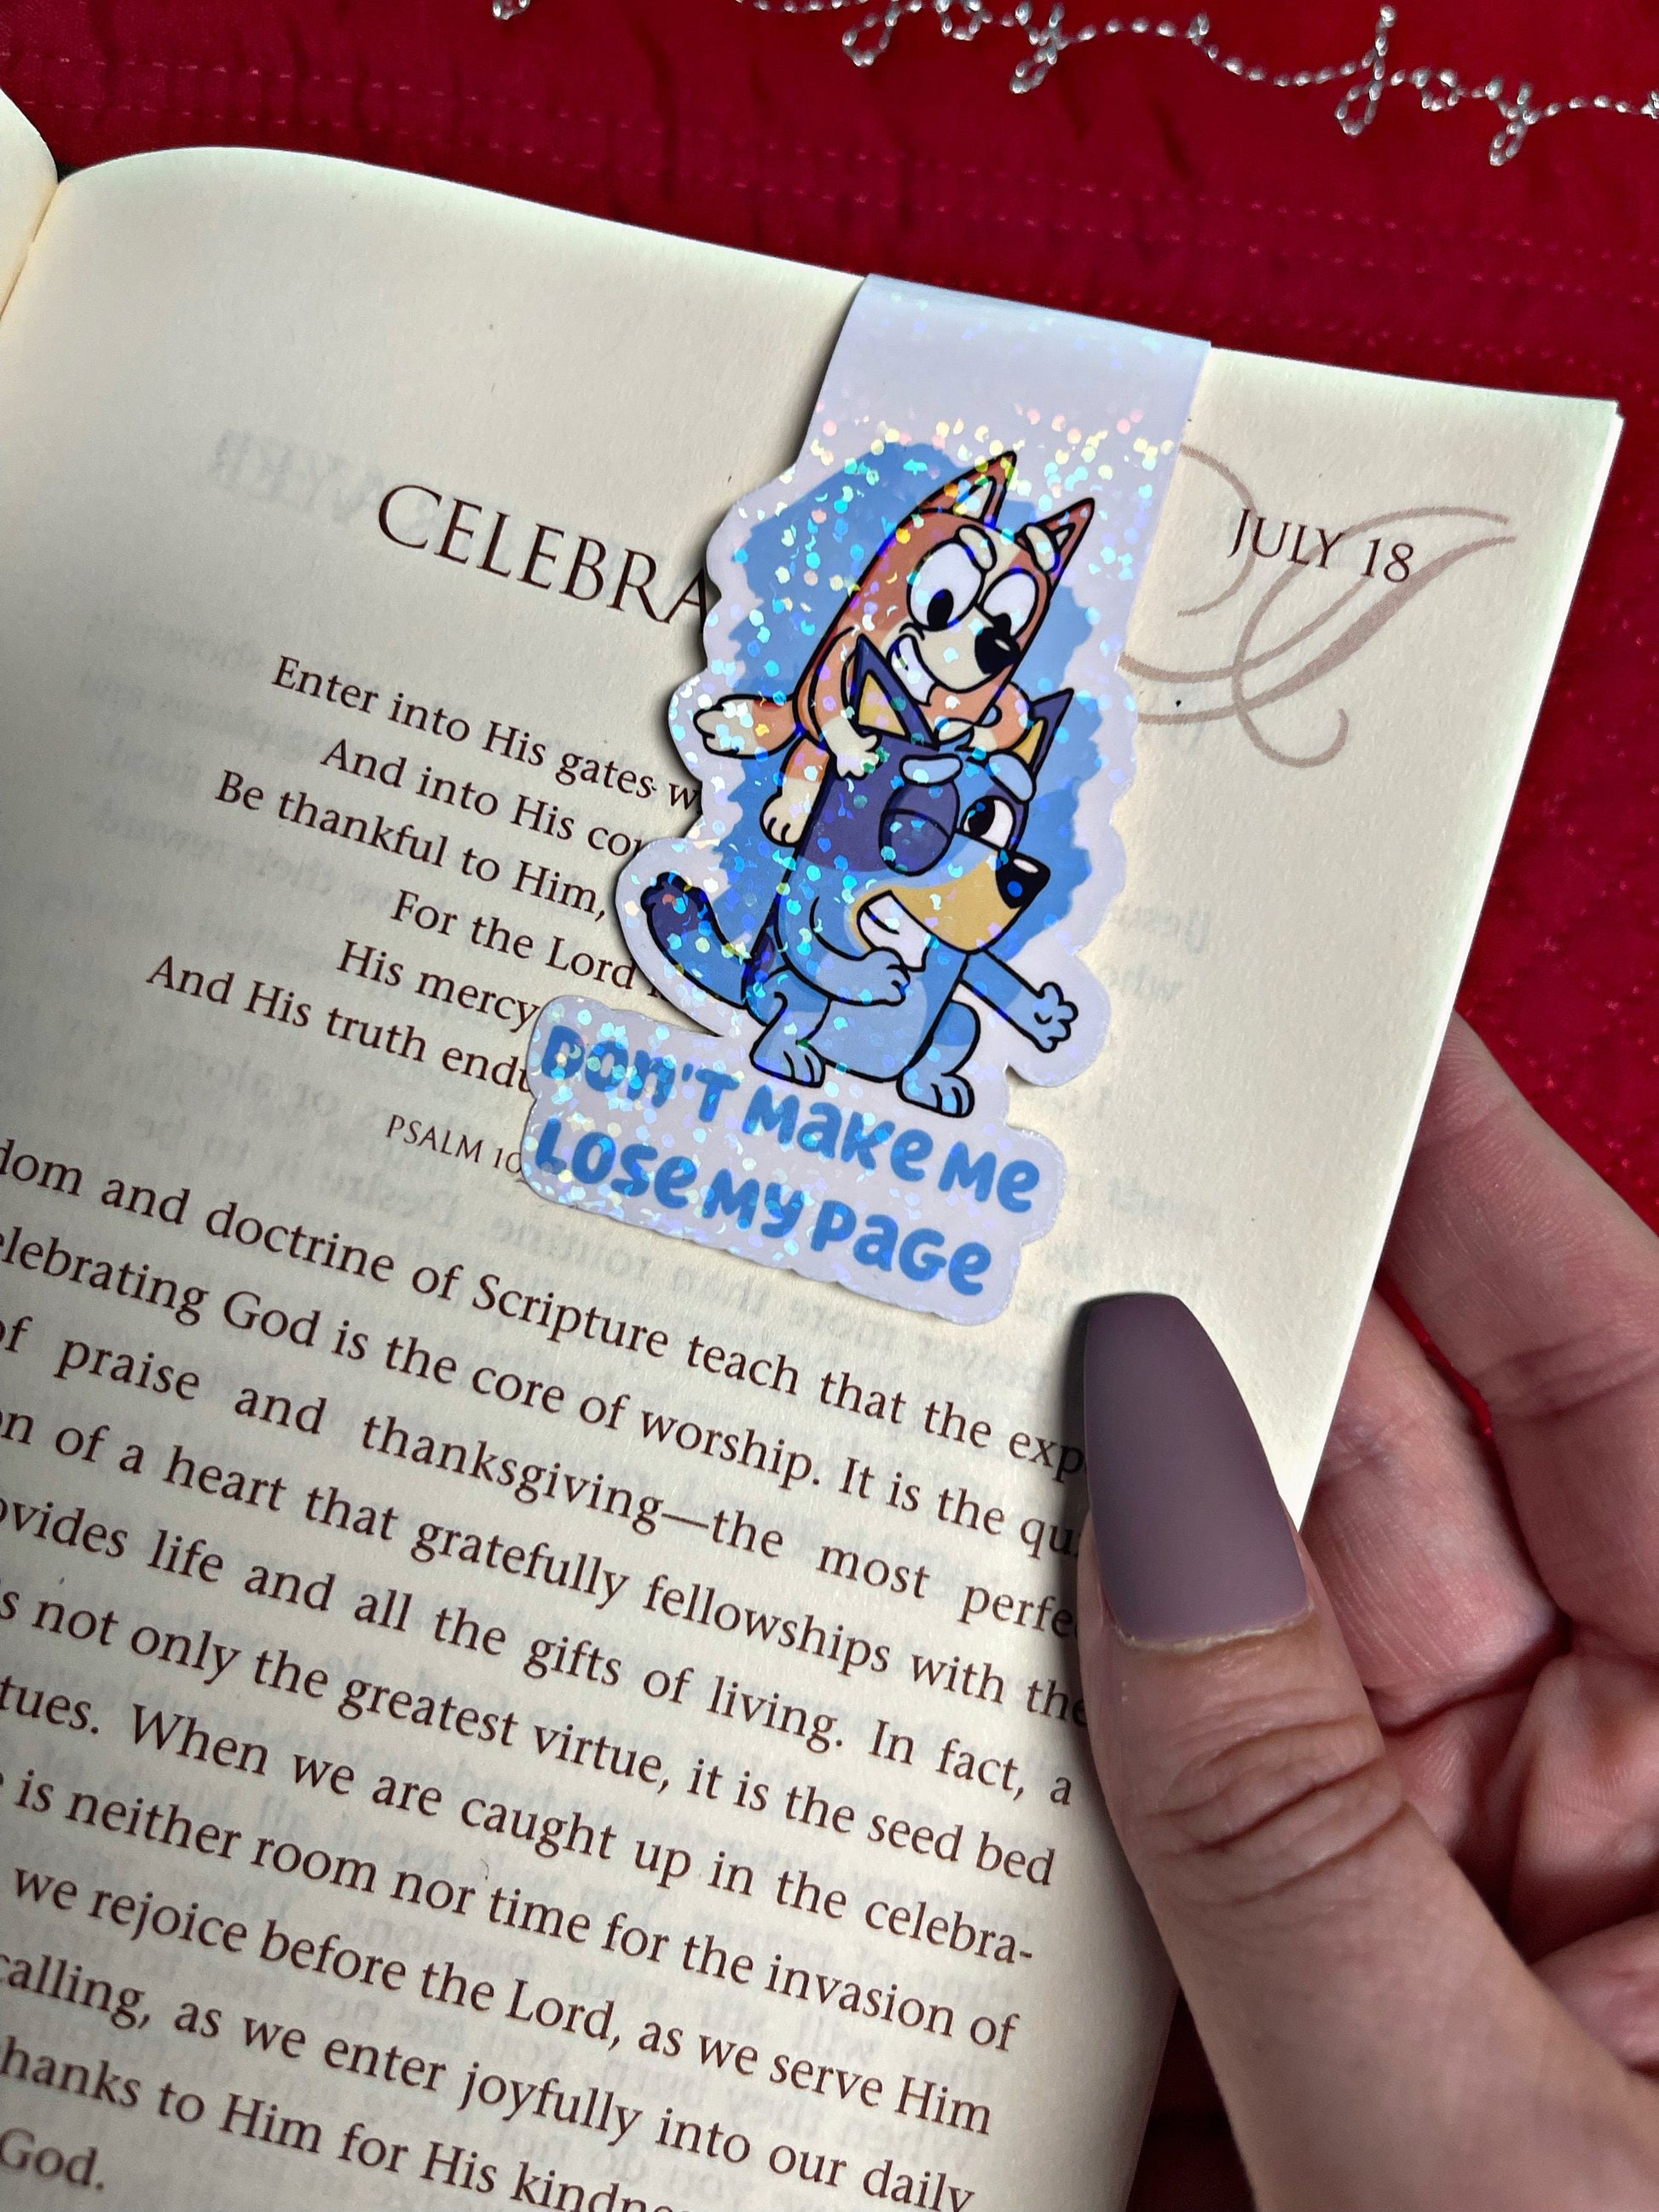 joy joy
CELEBRA
JULY 18
Enter into His gates
And into His
Be thankful to Him,
For the Lord
His mercy
And His truth
PSALM
DON'T MAKE ME
LOSE MY PAGE
and doctrine of Scripture teach that the
God is the core of worship. It is the
of praise and thanksgiving—the most
of a heart that gratefully fellowships with the
life and all the gifts of living. In fact, a
not only the greatest virtue, it is the seed bed
When we are caught up in the celebra-
is neither room nor time for the invasion of
we rejoice before the Lord, as we serve Him
calling, as we enter joyfully into our daily
to Him for His
God.